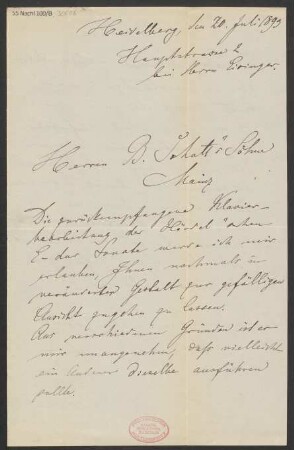 55 Nachl 100/B
Heidelberg, den 20. Juli 1893
Hauptstrasse 2
bei Herrn Eisinger.
Herren B. Schott's Söhne
Mainz
Die zurückempfangene Klavier-
bearbeitung der Händel'schen
E-dur Sonate werde ich mir
erlauben, Ihnen nochmals in
veränderter Gestalt zur gefälligen
Ansicht zugehen zu lassen.
Aus verschiedenen Gründen ist es
mir unangenehm, daß vielleicht
ein Andrer dieselbe ausführen
sollte.